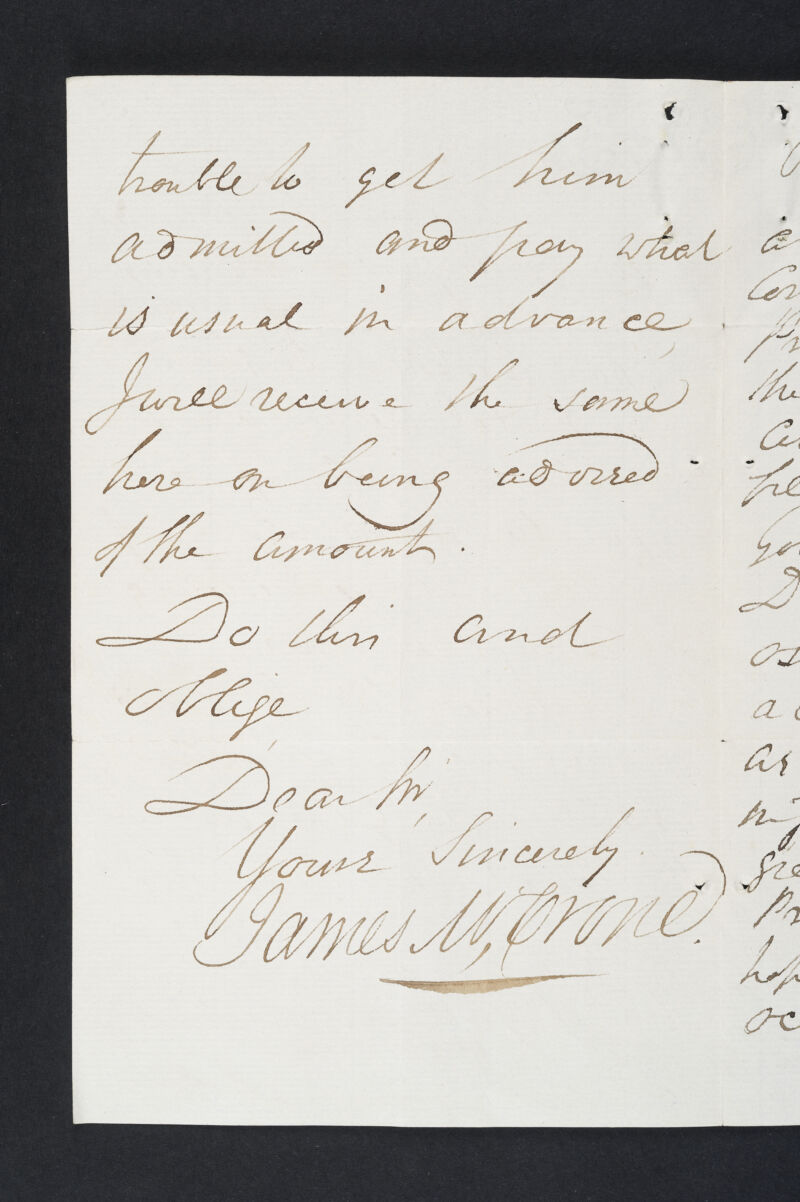 trouble to get him
admitted and pay what
is usual in advance,
I will receive the same
here on being advised
of the amount.
Do this and
oblige,
Dear Sir,
Yours Sincerely
James McCrone.
the